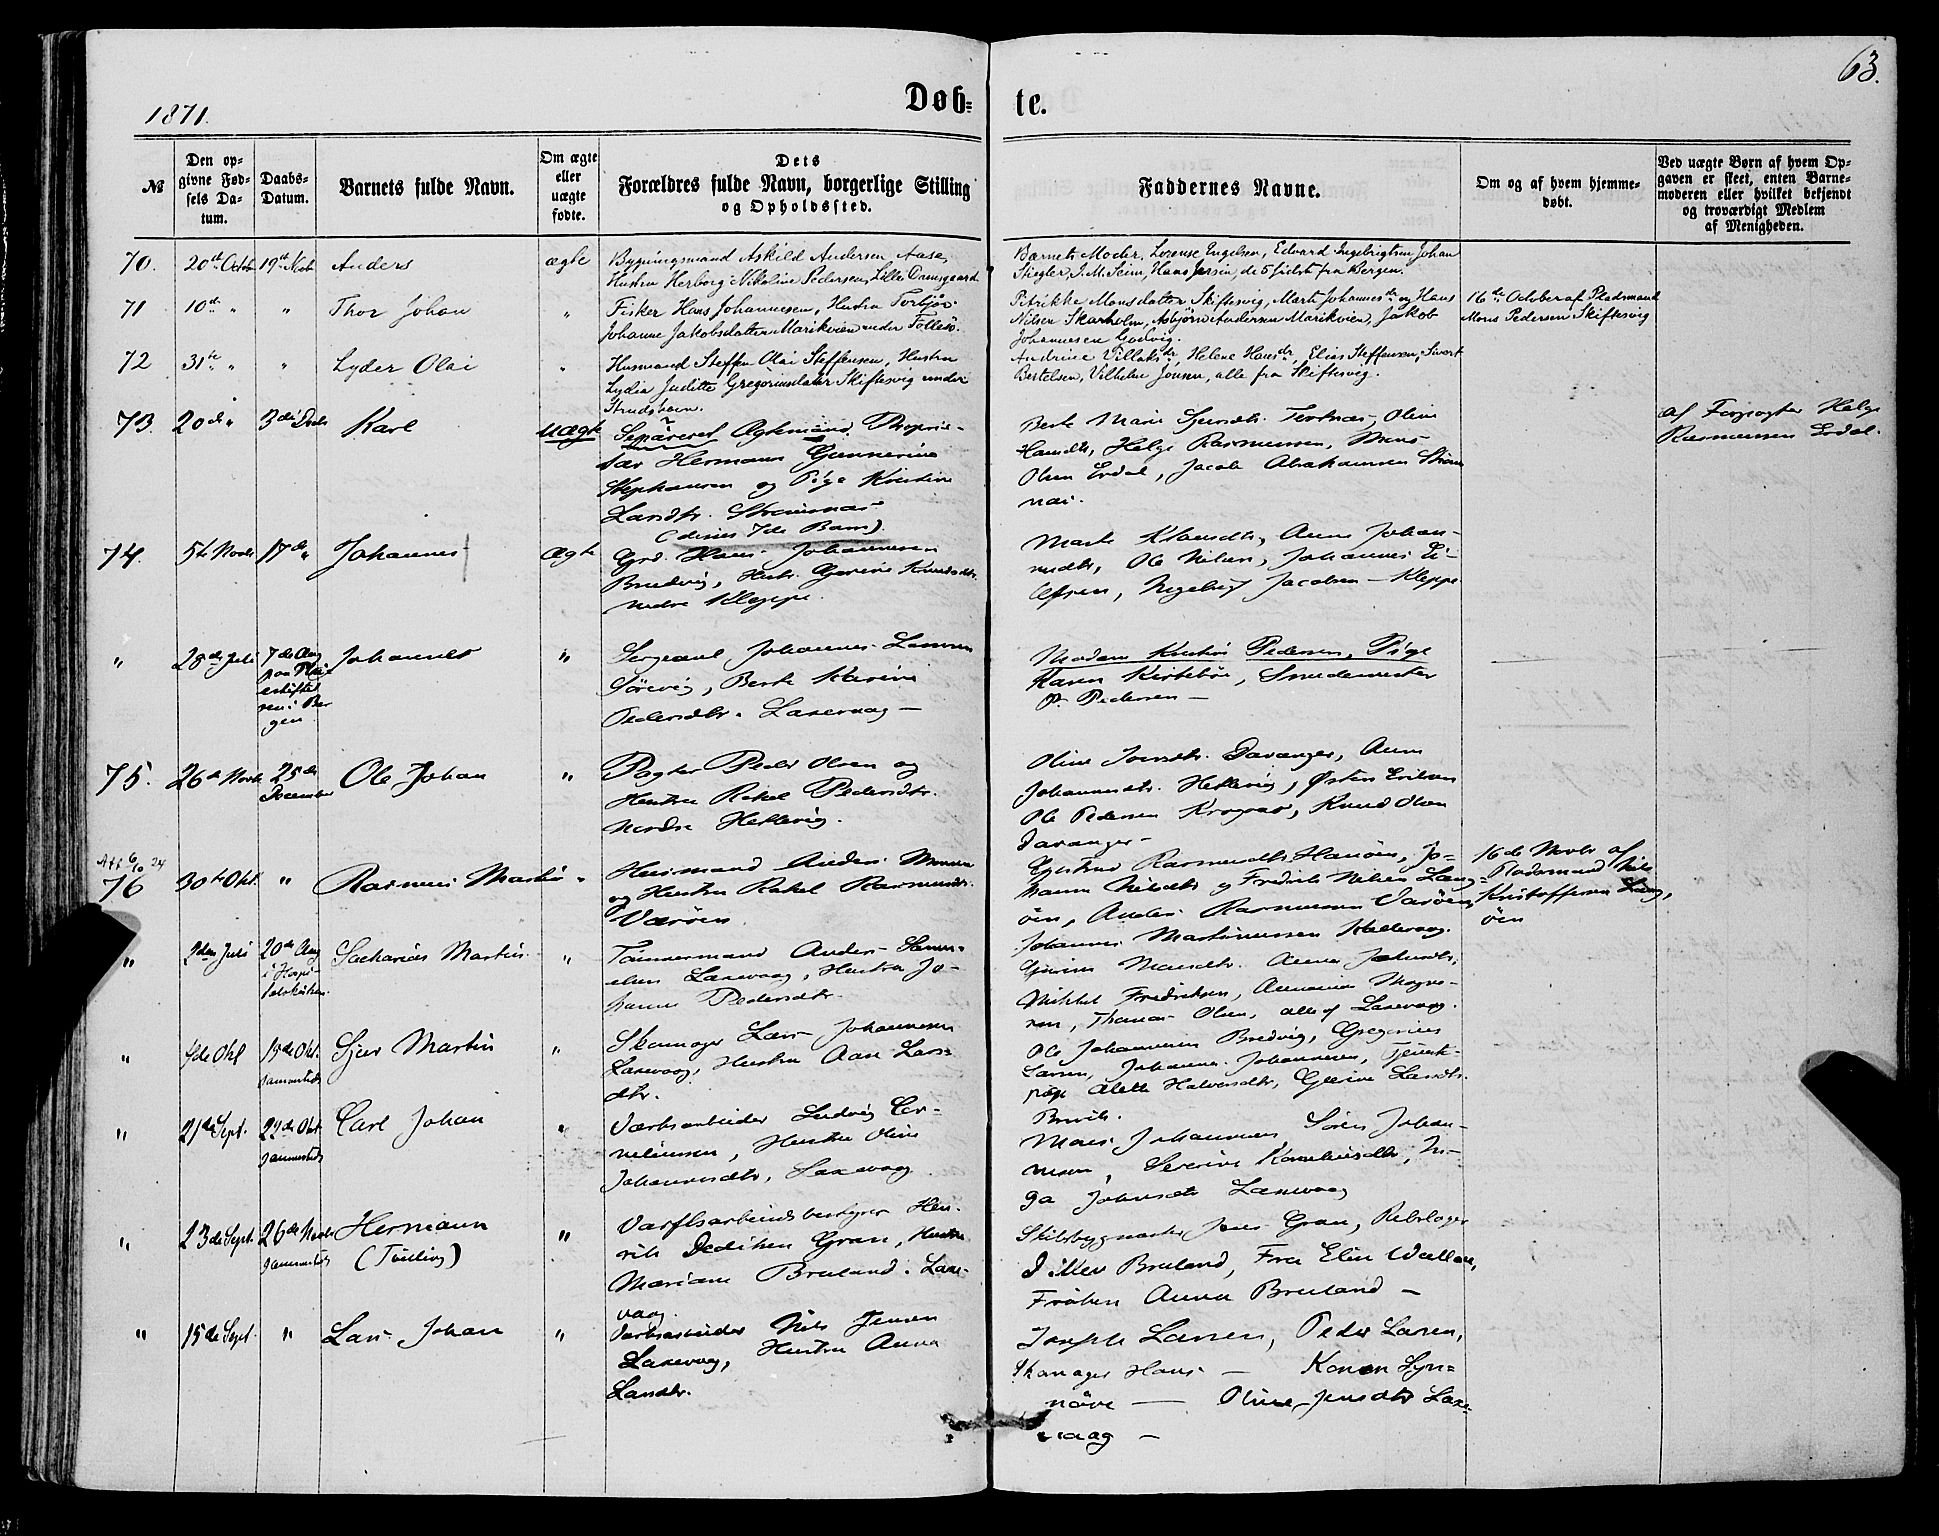 63.
1871.
Døb-
te.
№
Den op-
givne Fød-
sels Da-
tum.
Daabs-
Datum.
Barnets fulde Navn.
Om ægte
eller
uægte
fødte.
Dets
Forældres fulde Navn, borgerlige Stilling
og Opholdssted.
Faddernes Navne.
Om og af hvem hjemme-
døbt.
Ved uægte Børn af hvem Op-
gaven er skeet, enten Barne-
moderen eller hvilket bekjendt
og troværdigt Medlem
af Menigheden.
70. 20de Octob 19de Novb Anders ægte
Bygningsmand Askild Andersen Aase,
Hustru Herborg Nikoline Pedersen, Lille Damsgaard
Barnets Moder, Lorense Engelsen, Edvard Ingebrigtsen Johan
Stegler, J. M. Seim, Hans Jersin, de 5 sidste fra Bergen.
71 10de " " Thor Johan "
Fisker Hans Johannesen, Hustru Torbjør
Johanne Jakobsdatter Marikvien under Follesø.
Petrikke Monsdatter Skiftesvig, Marte Johannesdr og Hans
Nilsen Skarholm, Asbjørn Andersen Marikvien, Jakob
Johannesen Godvig.
16de October af Pladsmand
Mons Pedersen Skiftesvig
72 31te " " Lyder Olai "
Husmand Steffen Olai Steffensen, Hustru
Lydia Juditte Gregoriusdatter Skiftesvig under
Strudshavn.
Andrine Villaksdr Helene Hansdr, Elias Steffensen, Sivert
Bertelsen, Vilhelm Jonsen, alle fra Skiftesvig.
73. 20de " 3die Decbr Karl uægte
Separeret Ægtemand, Proprie-
tær Hermann Gunnerius
Stephansen og Pige Kristine
Larsdtr. Strømsnæs
(dennes 7de Barn).
Berte Marie Sjursdtr. Tertnæs, Oline
Hansdtr, Helge Rasmussen, Mons
Olsen Erdal, Jacob Abrahamsen Strøm-
næs.
af Forpagter Helge
Rasmussen Erdal.
74. 5te Novbr 17de " Johannes Ægte
Grd. Hans Johannesen
Bredvig, Hustr. Gjerine Knudsdtr.
nedre Kleppe.
Marte Knudsdtr, Anna Johan-
nesdtr, Ole Nilsen, Johannes El-
lefsen, Ingebrigt Jacobsen - Kleppe
" 28de Juli 7de Aug
paa Pleie-
stiftel
sen i Ber
gen Johannes "
Sergeant Johannes Larsen
Sørevig, Berte Karine
Pedersdtr. Laxevaag -
Madam Kristine Pedersen, Pige
Karen Kirkebøe, Smedemester
P. Pedersen -
75. 26de Novbr 25de
December Ole Johan "
Pagter Peder Olsen og
Hustru Rakel Pedersdtr.
Nordre Hetlevig.
Oline Iversdtr. Davanger, Anna
Johannesdtr. Hetlevig, Østen Eriksen
Ole Pedersen Krogaas, Knud Olsen
Davanger -
Att 6/10 24
76 30te Okt. " Rasmus Martin "
Husmand Anders Monsen
og Hustru Rakel Rasmusdtr.
Værøen
Gjertrud Rasmusdtr. Hanøen, Jo-
hanna Nilsdtr og Fredrik Nilsen Lang-
øen, Anders Rasmussen Værøen,
Johannes Martinussen Kallevaag
16de Novbr af
Pladsmand Nils
Kristoffersen Lang-
øen
" 2den Juli 20de Aug
i Hospi-
talskirken Sacharias Martin "
Tømmermand Anders Samu-
elsen Laxevaag, Hustru Jo-
hanne Pedersdtr.
Gjerine Mansdtr. Anna Johansdtr.
Mikkel Fredriksen, Annanias Magnu-
sen, Thomas Olsen, alle af Laxevaag.
" 4de Okt 15de Okt.
sammesteds Sjur Martin "
Skomager Lars Johannesen
Laxevaag, Hustru Aase Lars-
dtr.
Ole Johannesen Bredvig, Gregorius
Larsen, Johannes Johannesen, Tjeneste-
pige Alette Halvorsdtr, Gjerine Larsdtr.
Brevik.
" 21de Sept. 22de Okt
sammesteds Carl Johan "
Værksarbeider Ludvig Cor-
neliussen, Hustru Oline
Johannesdtr, Laxevaag
Mons Johannesen Søren Johan-
nesen, Severine Korneliusdtr, In-
ga Johnsdtr Laxevaag
" 23de Sept. 26de Novbr
sammesteds Hermann
(Tvilling) "
Værftsarbeidsbestyrer Hen-
rik Dedichen Gran, Hustru
Mariane Breland. Laxe-
vaag.
Skibsbygmester Jens Gran, Rebslager
Ditlev Breland, Fru Elise Wallem,
Frøken Anna Breland -
" 15de Sept. " Lars Johan "
Værksarbeider Nils Jensen
Laxevaag, Hustru Anna
Larsdtr.
Joseph Larsen, Peder Larsen,
Skomager Hans - Konen Syn-
nøve - Oline Jensdtr Laxe-
vaag -